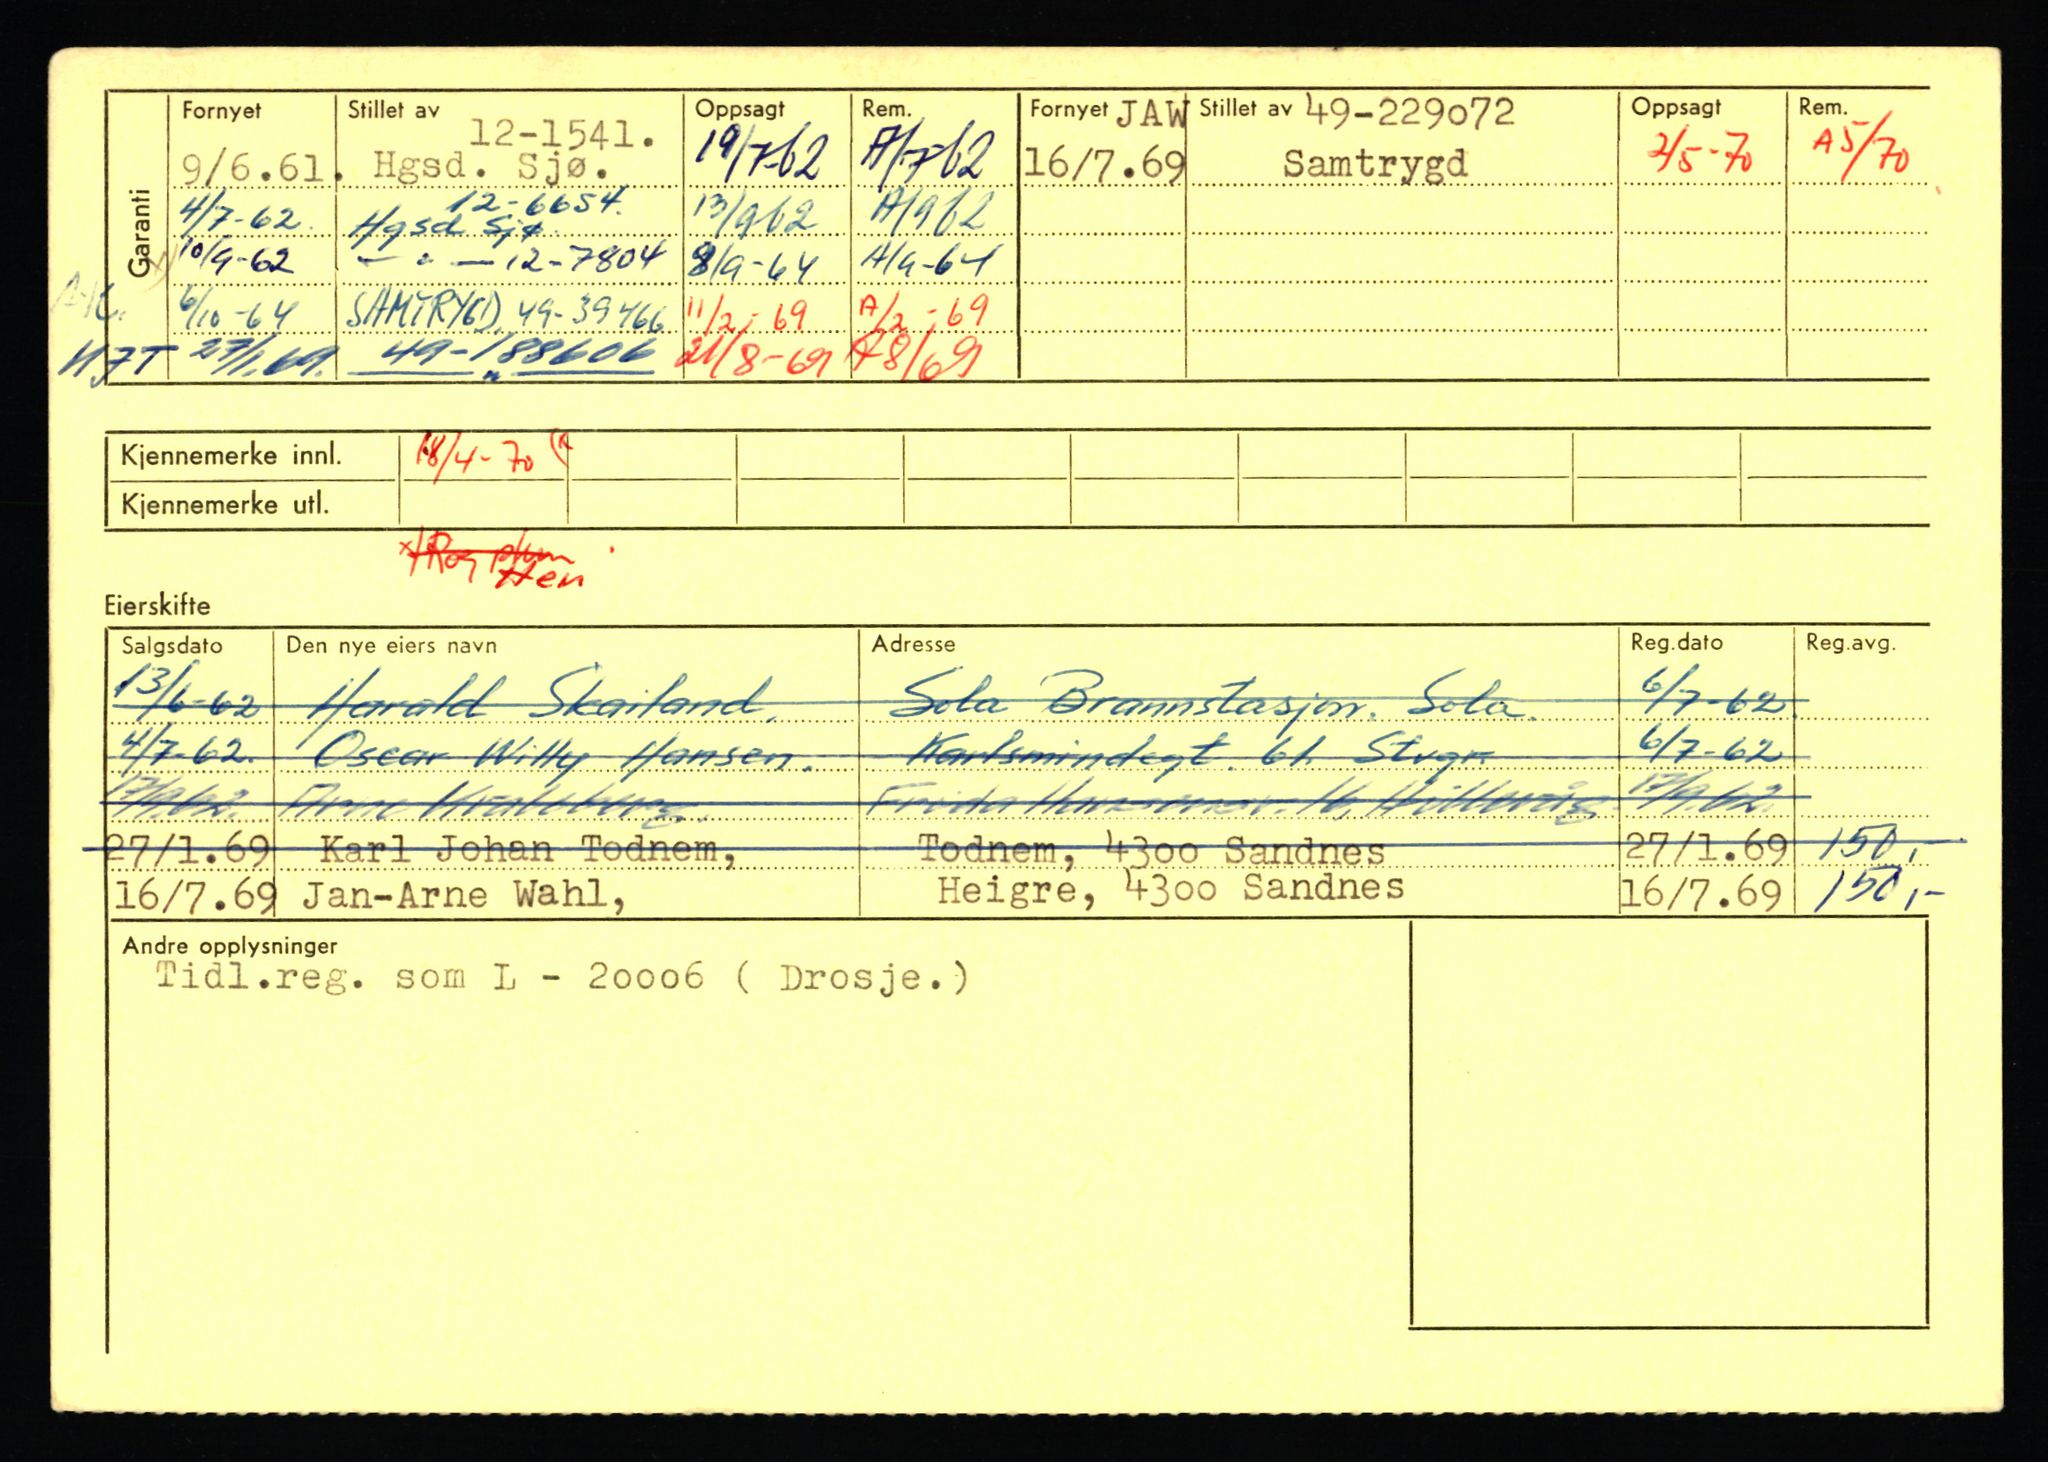 Garanti
Fornyet Stillet av Oppsagt Rem. Fornyet JAW Stillet av 49-229o72 Oppsagt Rem.
12-1541.
9/6.61. Hgsd. Sjø. 19/7-62 A/7-62 16/7.69 Samtrygd 2/5-70 A5/70
12-6654.
4/7-62. Hgsd Sjø. 13/9 62 A/9 62
10/9-62 — " — 12-7804 8/9-64 A/9-64
6/10-64 SAMTRYGD. 49-39466 11/2-69 A/2-69
HJT 27/1.69. 49-188606 21/8-69 A8/69
"
Kjennemerke innl. 18/4-70
Kjennemerke utl.
Eierskifte
Salgsdato Den nye eiers navn Adresse Reg.dato Reg.avg.
13/6-62 Harald Skailand. Sola Brannstasjon. Sola. 6/7-62
4/7-62. Oscar Willy Hansen. Karlsmindegt. 61. Stvgr 6/7-62
17/9.62. Arne 17/9.62.
27/1.69 Karl Johan Todnem, Todnem, 43oo Sandnes 27/1.69 150,-
16/7.69 Jan-Arne Wahl, Heigre, 43oo Sandnes 16/7.69 150,-
Andre opplysninger
Tidl.reg. som L - 2ooo6 ( Drosje.)